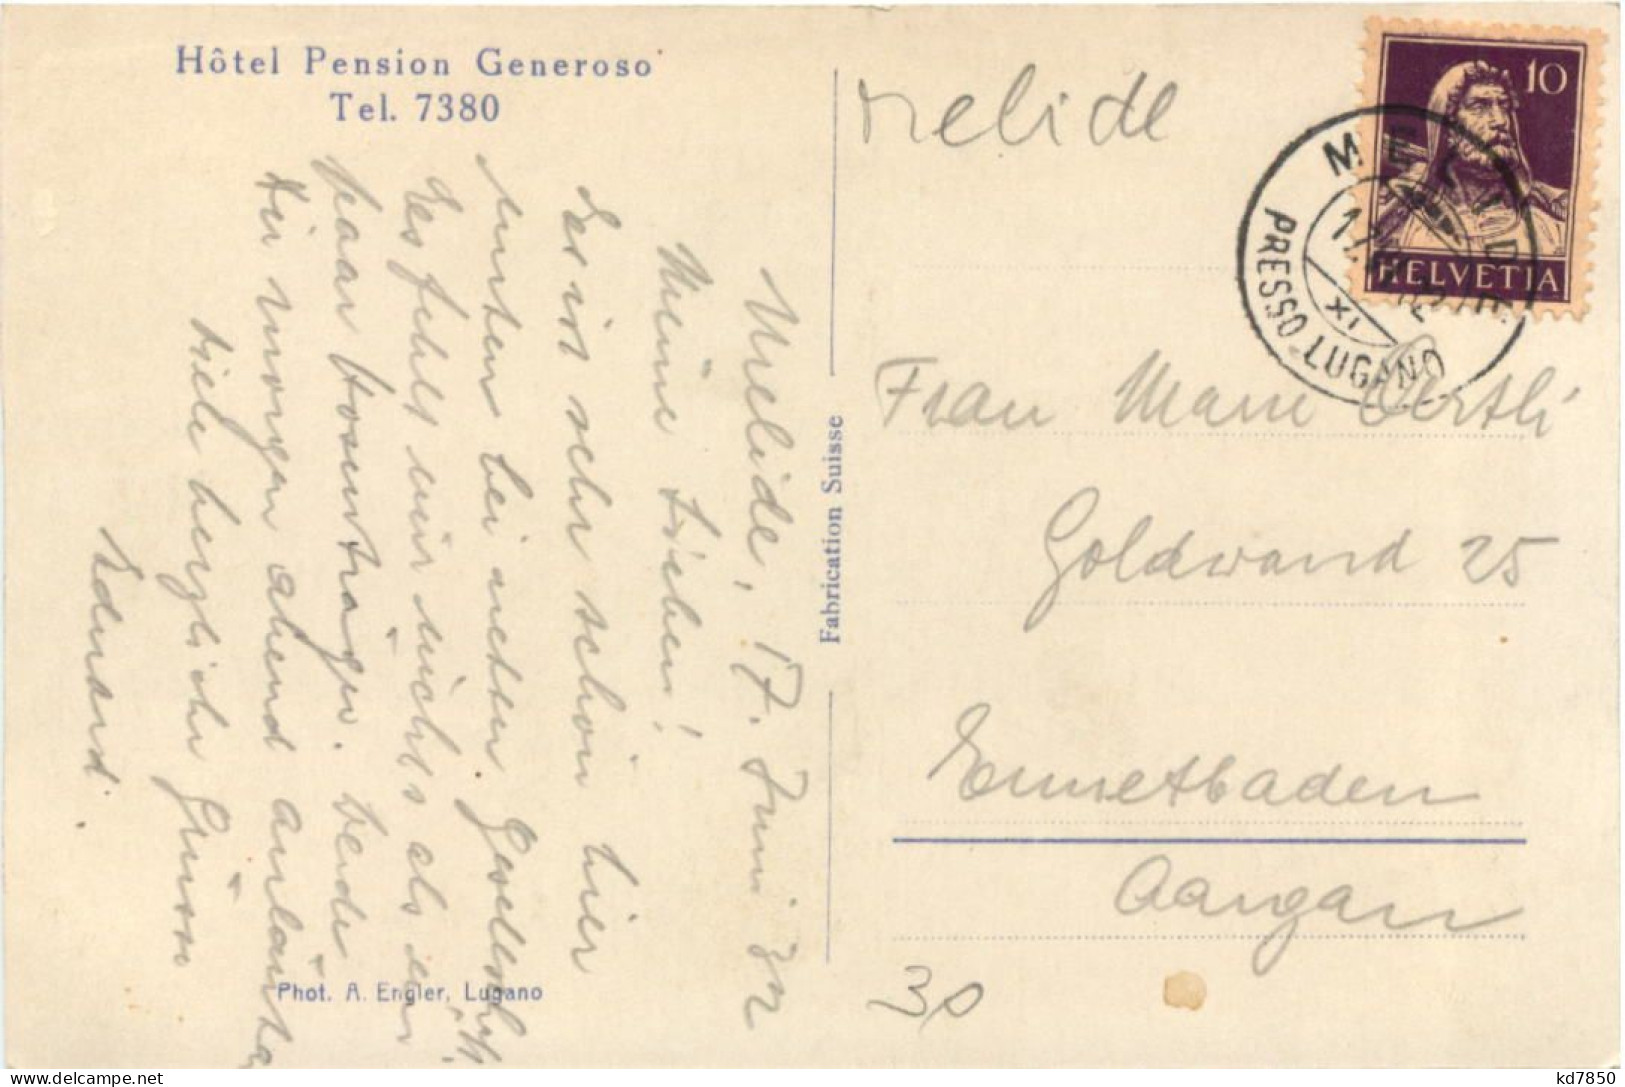 Hôtel Pension Generoso
Tel. 7380
Melide, 17. Juni 32
Meine Lieben!
Es ist sehr schön hier
unten bei netter Gesellschaft.
Es fehlt mir nichts als ein
paar Hosenträger. beide
abend
viele herzliche Grüsse
Eduard.
Phot. A. Engler, Lugano
Fabrication Suisse
Melide
10
HELVETIA
MELIDE
PRESSO LUGANO
XI
Frau Marie Oertli
Goldwand 25
Ennetbaden
Aargau
30
kd7850